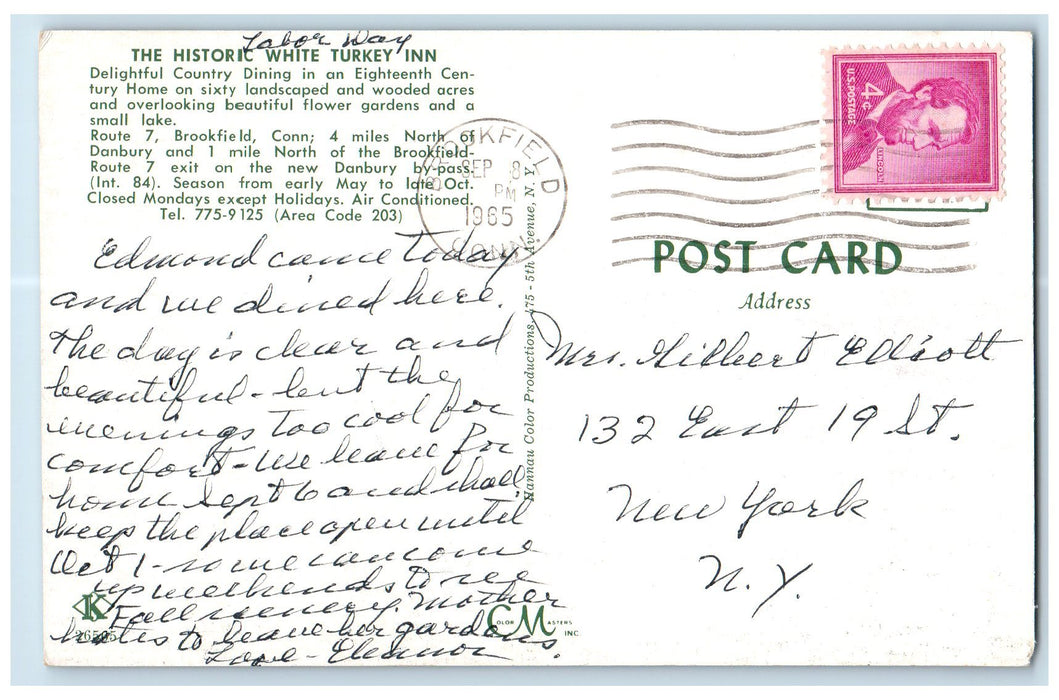 Labor Day
THE HISTORIC WHITE TURKEY INN
Delightful Country Dining in an Eighteenth Cen-
tury Home on sixty landscaped and wooded acres
and overlooking beautiful flower gardens and a
small lake.
Route 7, Brookfield, Conn; 4 miles North of
Danbury and 1 mile North of the Brookfield-
Route 7 exit on the new Danbury by-pass.
(Int. 84). Season from early May to late Oct.
Closed Mondays except Holidays. Air Conditioned.
Tel. 775-9125 (Area Code 203)
Edmond came today
and we dined here.
The day is clear and
beautiful - but the
evenings too cool for
comfort - We leave for
home Sept 6 and shall
keep the place open until
Oct 1 - so we can come
up weekends to see
Fall scenery. Mother
hates to leave her gardens.
Love - Eleanor
K
26505
COLOR MASTERS INC.
Hannau Color Productions, 475 - 5th Avenue, N. Y.
BROOKFIELD
SEP 8
PM
1965
CONN
U.S. POSTAGE
4¢
LINCOLN
POST CARD
Address
Mrs. Gilbert Elliott
132 East 19 St.
New York
N.Y.